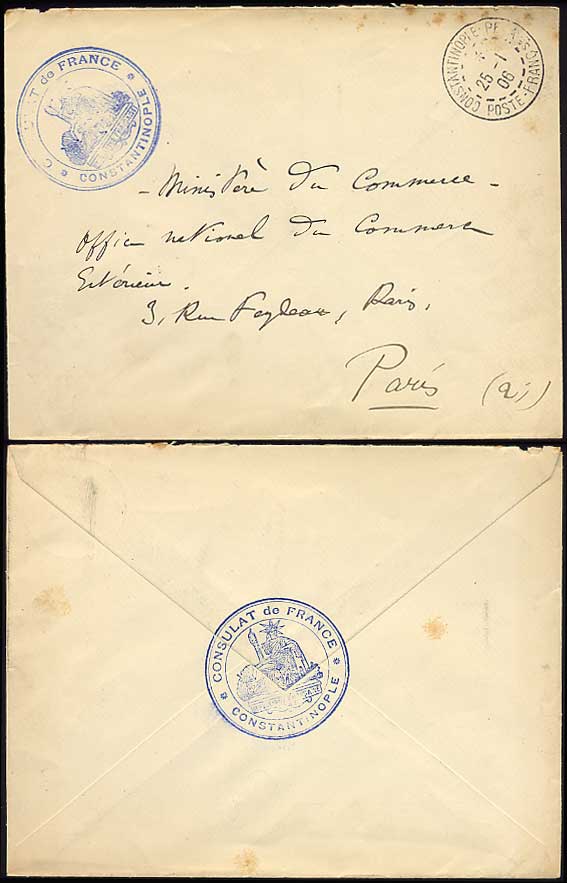 CONSULAT de FRANCE
CONSTANTINOPLE
CONSTANTINOPLE-PERA
POSTE-FRANÇAISE
25 -1
06
- Ministère du Commerce -
Office national du Commerce
Extérieur.
3, Rue Feydeau, Paris,
Paris
CONSULAT de FRANCE
CONSTANTINOPLE